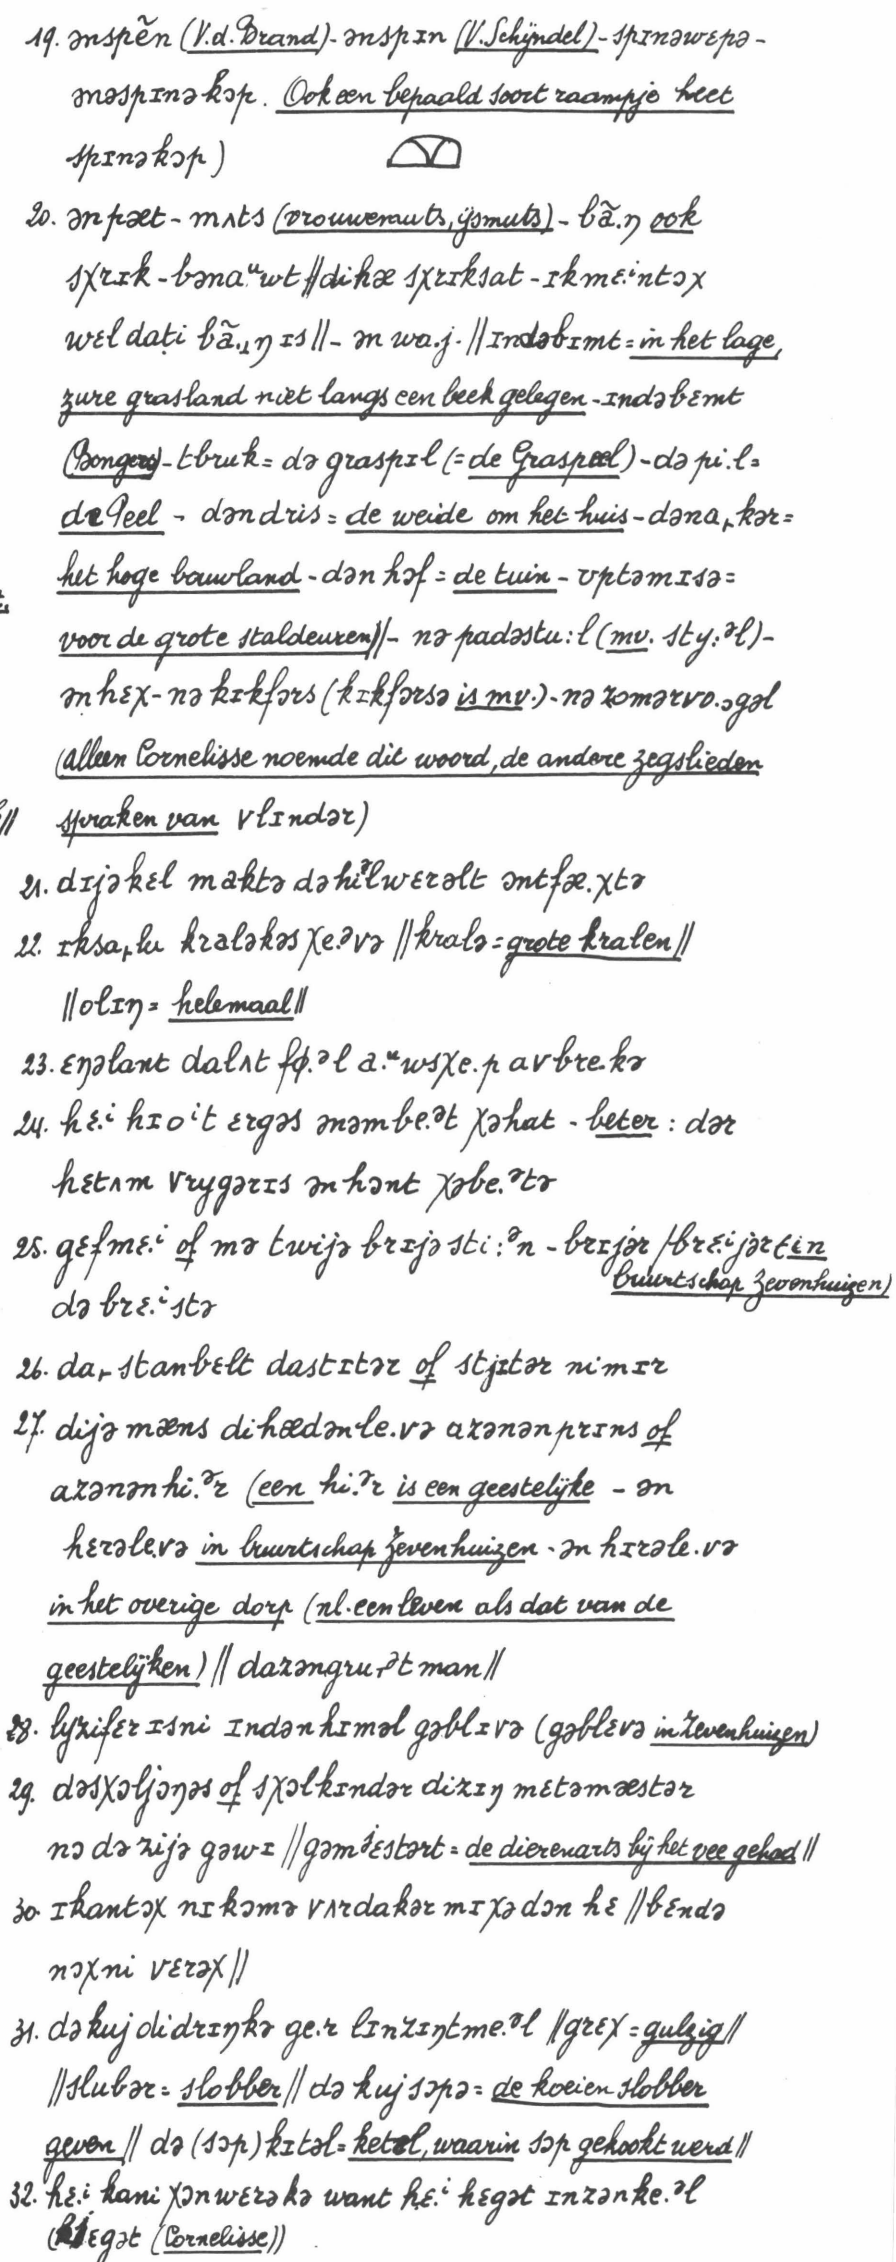 19. ənspẽn (V.d. Brand) - ənspɪn (V. Schijndel) - spɪnəwɛpə -
ənəspɪnəkɔp. Ook een bepaald soort raampje heet
spɪnəkɔp)
20. ənpæt - mʌts (vrouwenmuts, ijsmuts) - bã.ŋ ook
sχrɪk - bəna.ᵘwt // dihæ sχrɪksat - ɪkmɛ.ⁱntɔχ
wɛl dati bã.ŋ ɪs // - ən wa.j. // ɪndəbɪmt = in het lage,
zure grasland niet langs een beek gelegen - ɪndəbɛmt
(Bongers) - tbruk = də graspɪl (= de Graspeel) - də pi.l =
de Peel - dəndris = de weide om het huis - dəna˔kər =
het hoge bouwland - dən hɔf = de tuin - ʋptəmɪsə =
voor de grote staldeuren) // - nə padəstu:l (mv. sty:ᵊl) -
ənhɛχ - nə kɪkfɔrs (kɪkfɔrsə is mv.) - nə zomərvo.ɔgəl
(alleen Cornelisse noemde dit woord, de andere zegslieden
spraken van vlɪndər)
21. dɪjəkɛl maktə dəhiᵊlwɛrəlt əntfæ.χtə
22. ɪksa˔lu kraləkəs χe.ᵊvə // kralə = grote kralen //
// olɪŋ = helemaal //
23. ɛŋəlant dalʌt fø.ᵊl a.ᵘwsχe.p avbre.kə
24. hɛ.ⁱ hɪoⁱt ɛrgəs ənəmbe.ᵊt χəhat - beter : dər
hɛtʌm vrygərɪs ən hɔnt χəbe.ᵊtə
25. gɛfmɛ.ⁱ of mə twijə brɪjə sti:ᵊn - brɪjər / brɛ.ⁱjər (in
buurtschap Zevenhuizen)
də brɛ.ⁱstə
26. da˔ stanbɛlt dastɪtər of stjɪtər nimɪr
27. dijə mæns dihædənle.və azənənprɪns of
azənənhi.ᵊr (een hi.ᵊr is een geestelijke - ən
hɛrəle.və in buurtschap Zevenhuizen - ən hɪrəle.və
in het overige dorp (nl. een leven als dat van de
geestelijken) // dazəngru˔ᵊt man //
28. lyzifɛr ɪsni ɪndənhɪməl gəblɪvə (gəblɛvə in Zevenhuizen)
29. dəsχəljɔŋəs of sχəlkɪndər dizɪŋ mɛtəmæstər
nə də zijə gəwɪ // gəmjɛstərt = de dierenarts bij het vee gehad //
30. ɪkantɔχ nɪkəmə vʌrdakər mɪχədən hɛ // bɛndə
nɔχni vɛrəχ //
31. də kuj didrɪŋkə ge.r lɪnzɪŋtme.ᵊl // grɛχ = gulzig //
// slubər = slobber // də kujsɔpə = de koeien slobber
geven // də (sɔp)kɪtəl = ketel, waarin sɔp gekookt werd //
32. hɛ.ⁱ kani χənwɛrəkə want hɛ.ⁱ hɛgət ɪnzənke.ᵊl
(hjɛgət (Cornelisse))